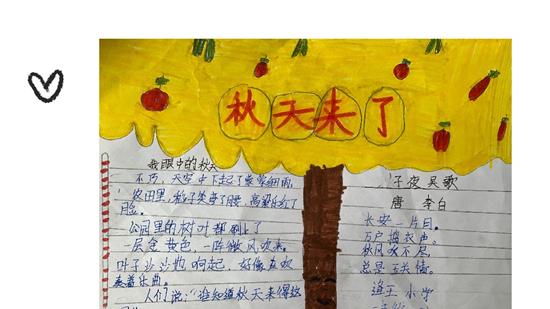 秋天来了
我眼中的秋天
不巧，天空中下起了蒙蒙细雨，
农田里，稻子笑弯了腰，高粱乐红了
脸。
公园里的树叶都刷上了
层金黄色，一阵微风吹来，
叶子沙沙的响起，好像在欢
奏着乐曲。
人们说："谁知道秋天来得这
子夜吴歌
唐 李白
长安一片月。
万户捣衣声。
秋风吹不尽，
总是玉关情。
逸王 小学